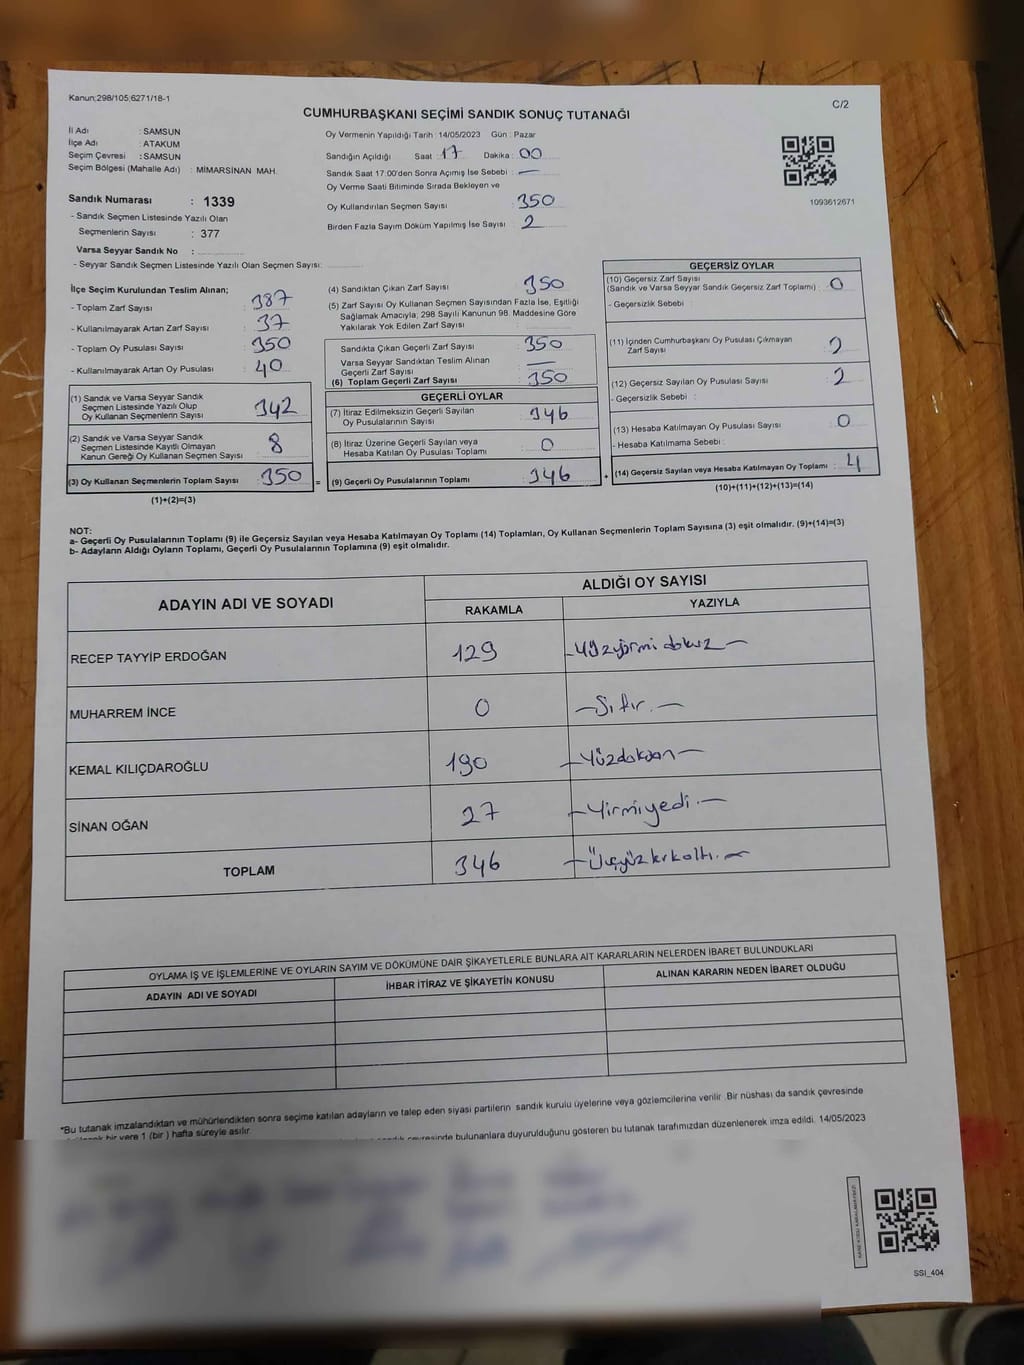 Kanun;298/105;6271/18-1
C/2
CUMHURBAŞKANI SEÇİMİ SANDIK SONUÇ TUTANAĞI
İl Adı : SAMSUN
İlçe Adı : ATAKUM
Seçim Çevresi : SAMSUN
Seçim Bölgesi (Mahalle Adı) : MİMARSİNAN MAH.
Sandık Numarası : 1339
- Sandık Seçmen Listesinde Yazılı Olan
Seçmenlerin Sayısı : 377
Varsa Seyyar Sandık No :
- Seyyar Sandık Seçmen Listesinde Yazılı Olan Seçmen Sayısı:
Oy Vermenin Yapıldığı Tarih : 14/05/2023 Gün : Pazar
Sandığın Açıldığı Saat : 17 Dakika : 00
Sandık Saat 17:00'den Sonra Açımış İse Sebebi : —
Oy Verme Saati Bitiminde Sırada Bekleyen ve
Oy Kullandırılan Seçmen Sayısı : 350
Birden Fazla Sayım Döküm Yapılmış İse Sayısı : 2
1093612671
İlçe Seçim Kurulundan Teslim Alınan;
- Toplam Zarf Sayısı : 387
- Kullanılmayarak Artan Zarf Sayısı : 37
- Toplam Oy Pusulası Sayısı : 350
- Kullanılmayarak Artan Oy Pusulası : 40
(1) Sandık ve Varsa Seyyar Sandık
Seçmen Listesinde Yazılı Olup
Oy Kullanan Seçmenlerin Sayısı : 342
(2) Sandık ve Varsa Seyyar Sandık
Seçmen Listesinde Kayıtlı Olmayan
Kanun Gereği Oy Kullanan Seçmen Sayısı : 8
(3) Oy Kullanan Seçmenlerin Toplam Sayısı : 350 =
(1)+(2)=(3)
(4) Sandıktan Çıkan Zarf Sayısı : 350
(5) Zarf Sayısı Oy Kullanan Seçmen Sayısından Fazla İse, Eşitliği
Sağlamak Amacıyla, 298 Sayılı Kanunun 98. Maddesine Göre
Yakılarak Yok Edilen Zarf Sayısı :
Sandıkta Çıkan Geçerli Zarf Sayısı : 350
Varsa Seyyar Sandıktan Teslim Alınan
Geçerli Zarf Sayısı : —
(6) Toplam Geçerli Zarf Sayısı : 350
GEÇERLİ OYLAR
(7) İtiraz Edilmeksizin Geçerli Sayılan
Oy Pusulasının Sayısı : 346
(8) İtiraz Üzerine Geçerli Sayılan veya
Hesaba Katılan Oy Pusulası Toplamı : 0
(9) Geçerli Oy Pusulalarının Toplamı : 346 +
GEÇERSİZ OYLAR
(10) Geçersiz Zarf Sayısı
(Sandık ve Varsa Seyyar Sandık Geçersiz Zarf Toplamı) : 0
- Geçersizlik Sebebi :
(11) İçinden Cumhurbaşkanı Oy Pusulası Çıkmayan
Zarf Sayısı : 2
(12) Geçersiz Sayılan Oy Pusulası Sayısı : 2
- Geçersizlik Sebebi :
(13) Hesaba Katılmayan Oy Pusulası Sayısı : 0
- Hesaba Katılmama Sebebi :
(14) Geçersiz Sayılan veya Hesaba Katılmayan Oy Toplamı : 4
(10)+(11)+(12)+(13)=(14)
NOT:
a- Geçerli Oy Pusulalarının Toplamı (9) ile Geçersiz Sayılan veya Hesaba Katılmayan Oy Toplamı (14) Toplamları, Oy Kullanan Seçmenlerin Toplam Sayısına (3) eşit olmalıdır. (9)+(14)=(3)
b- Adayların Aldığı Oyların Toplamı, Geçerli Oy Pusulalarının Toplamına (9) eşit olmalıdır.
ADAYIN ADI VE SOYADI
ALDIĞI OY SAYISI
RAKAMLA YAZIYLA
RECEP TAYYİP ERDOĞAN 129 –Yüzyirmi dokuz–
MUHARREM İNCE 0 –Sıfır.–
KEMAL KILIÇDAROĞLU 190 –Yüzdoksan–
SİNAN OĞAN 27 –Yirmiyedi.–
TOPLAM 346 –Üçyüzkırkaltı.–
OYLAMA İŞ VE İŞLEMLERİNE VE OYLARIN SAYIM VE DÖKÜMÜNE DAİR ŞİKAYETLERLE BUNLARA AİT KARARLARIN NELERDEN İBARET BULUNDUKLARI
ADAYIN ADI VE SOYADI İHBAR İTİRAZ VE ŞİKAYETİN KONUSU ALINAN KARARIN NEDEN İBARET OLDUĞU
*Bu tutanak imzalandıktan ve mühürlendikten sonra seçime katılan adayların ve talep eden siyasi partilerin sandık kurulu üyelerine veya gözlemcilerine verilir. Bir nüshası da sandık çevresinde
bir yere 1 (bir ) hafta süreyle asılır.
sandık çevresinde bulunanlara duyurulduğunu gösteren bu tutanak tarafımızdan düzenlenerek imza edildi. 14/05/2023
SSI_404